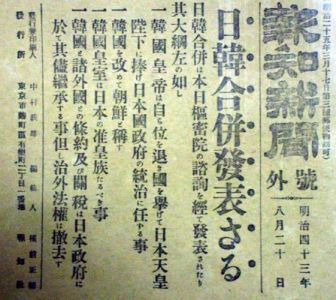 報知新聞
號外
明治四十三年
八月二十日
日韓合併發表さる
日韓合併は本日樞密院の諮詢を經て發表されたり
其大綱左の如し
一韓國皇帝は自ら位を退き國を擧げて日本天皇
陛下に捧げ日本國政府の統治に任する事
一韓國を改めて朝鮮と稱す
一韓國皇室は日本の准皇族たるべき事
一韓國と諸外國との條約及び關税は日本政府に
於て其儘繼承する事但し治外法權は撤去す
發行兼印刷人 中村 編輯人
發行所 東京市麹町區有樂町二丁目一番地 報知社